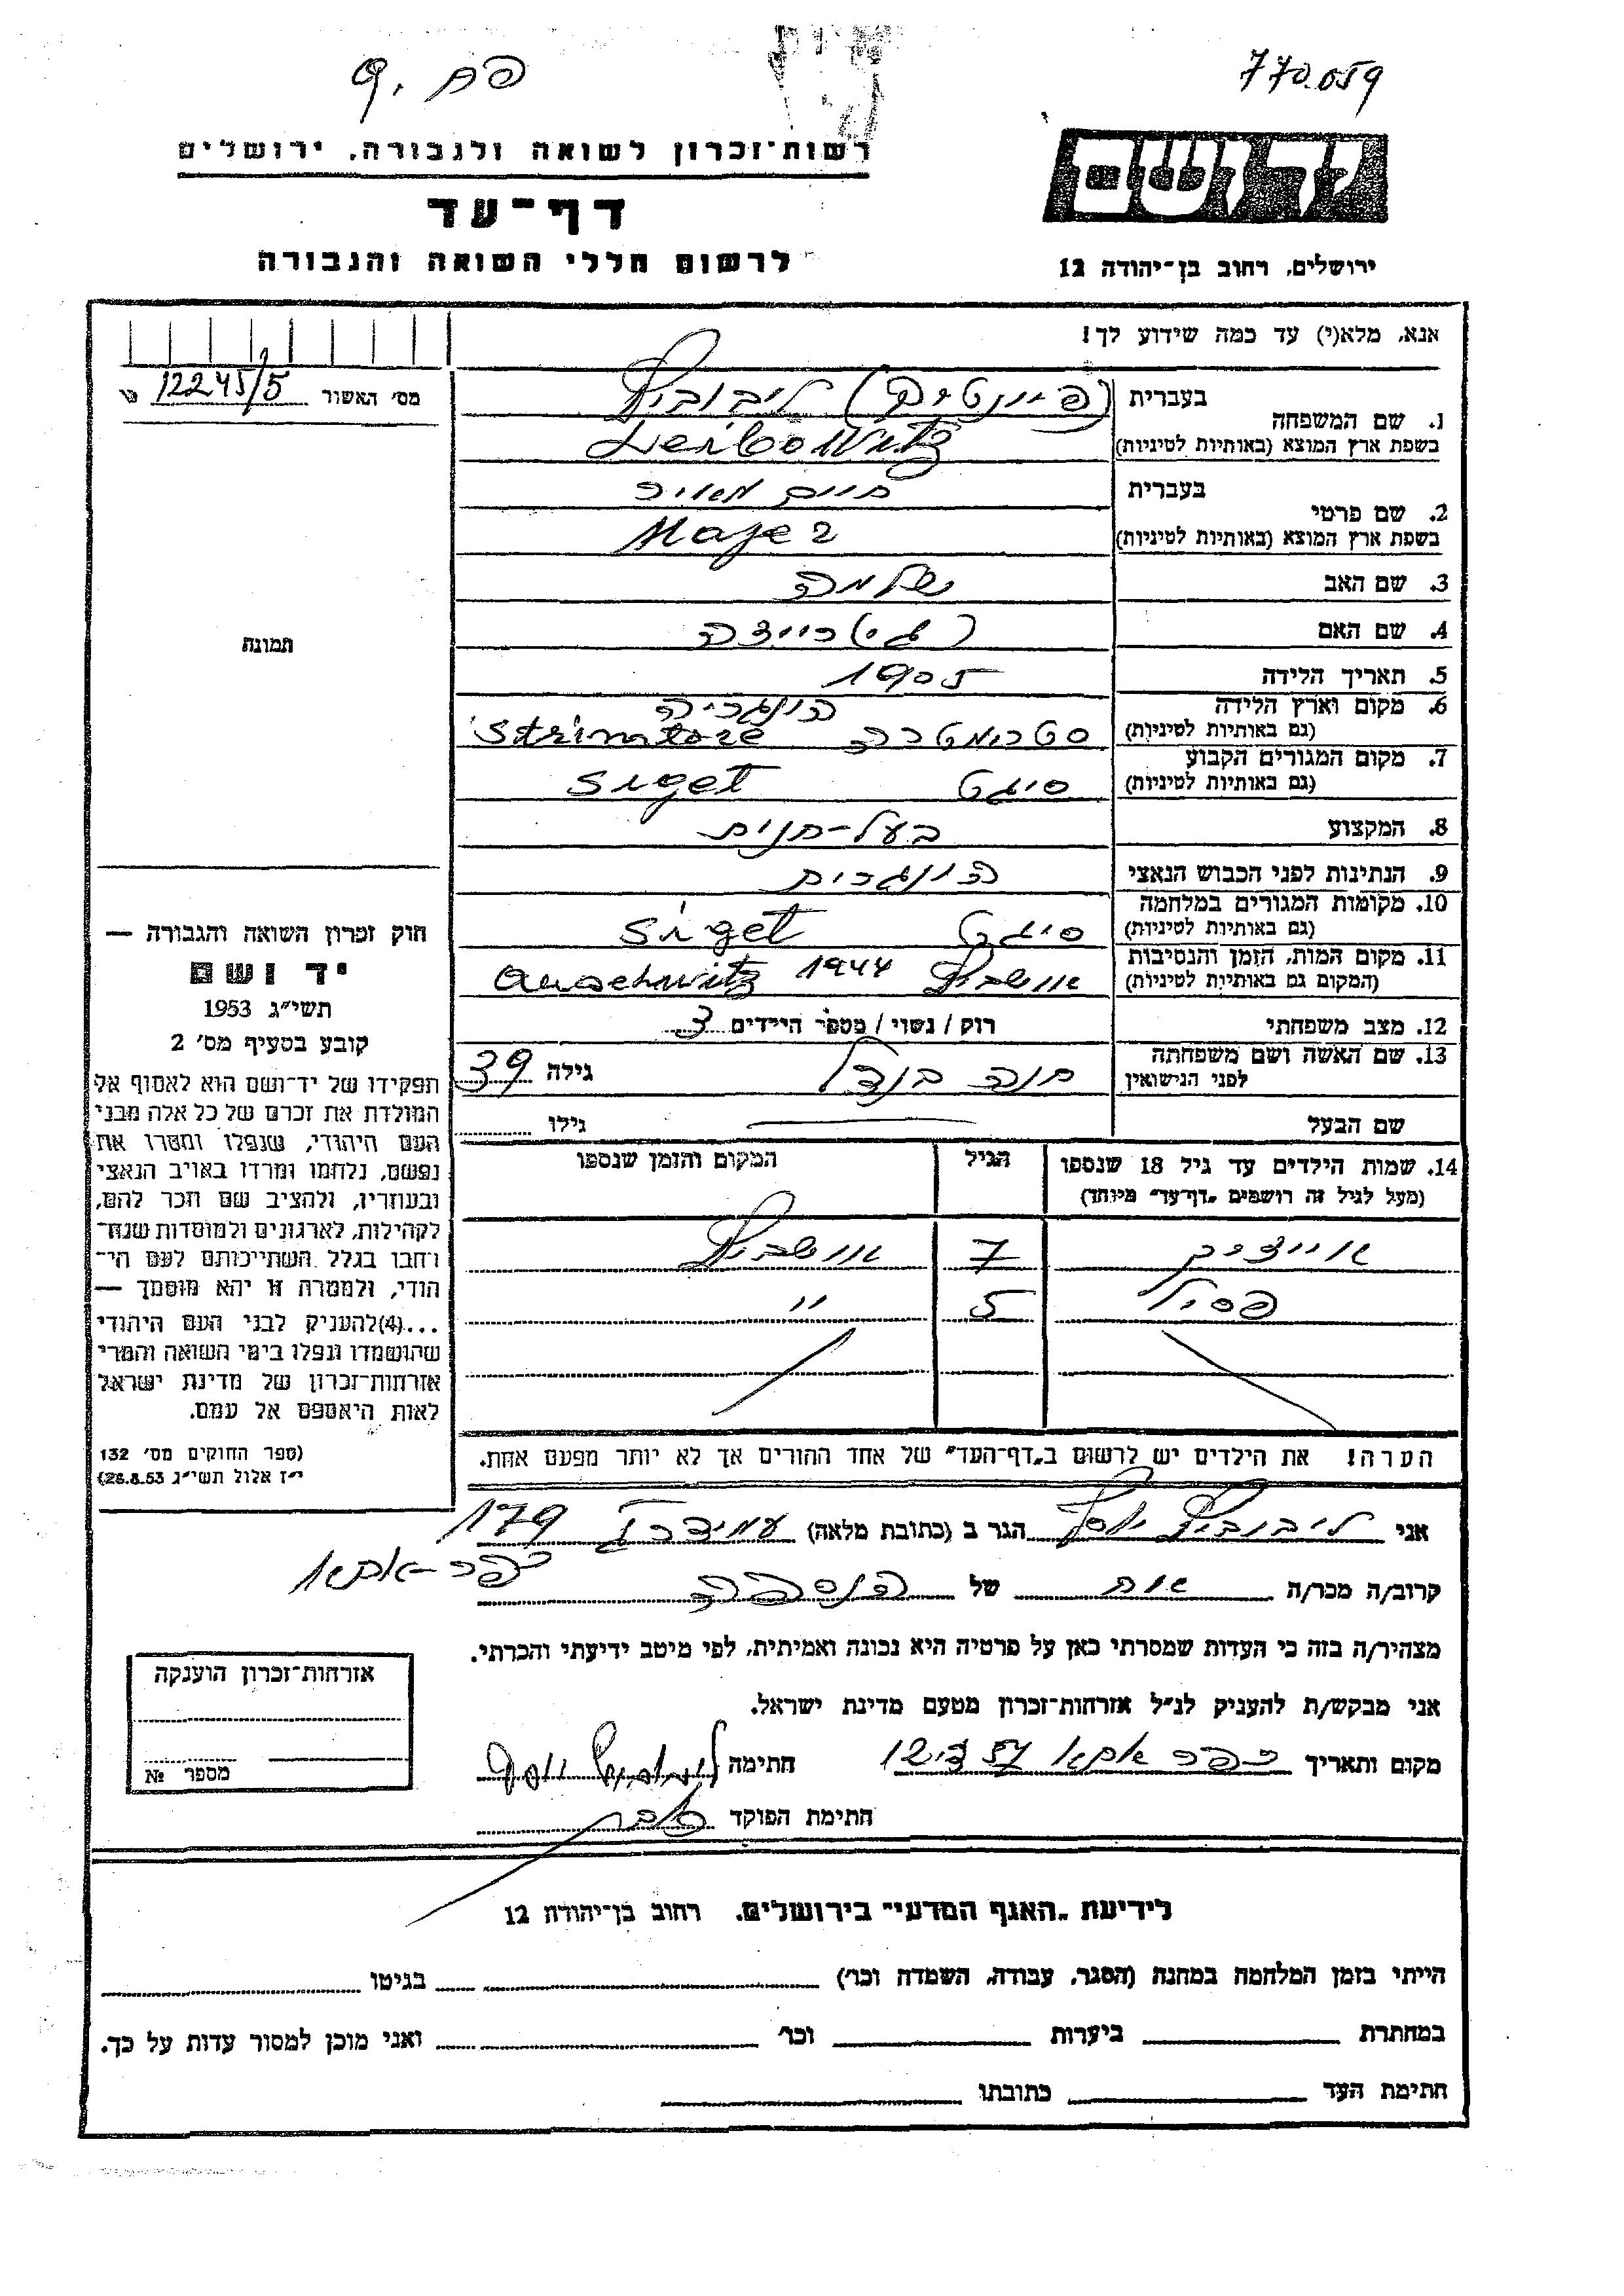 770.059
רשות־זכרון לשואה ולגבורה, ירושלים
דף־עד
לרשום חללי השואה והגבורה
יד ושם
ירושלים, רחוב בן־יהודה 12
אנא, מלא(י) עד כמה שידוע לך!
מס' האשור 12245/5
1. שם המשפחה
בעברית ליבוביץ
בשפת ארץ המוצא (באותיות לטיניות) Leibowitz
2. שם פרטי
בעברית חיים מאיר
בשפת ארץ המוצא (באותיות לטיניות) Majer
3. שם האב שלמה
4. שם האם
5. תאריך הלידה 1905
6. מקום וארץ הלידה הונגריה
(גם באותיות לטיניות) סטרימטרה Strimtere
7. מקום המגורים הקבוע
(גם באותיות לטיניות) סיגט Siget
8. המקצוע בעל-חנות
9. הנתינות לפני הכבוש הנאצי הונגרית
10. מקומות המגורים במלחמה
(גם באותיות לטיניות) סיגט Siget
11. מקום המות, הזמן והנסיבות
(המקום גם באותיות לטיניות) אושביץ 1944 Auschwitz
12. מצב משפחתי רוק / נשוי / מספר הילדים 3
13. שם האשה ושם משפחתה
לפני הנישואין חנה בנדל גילה 39
שם הבעל גילו
14. שמות הילדים עד גיל 18 שנספו הגיל המקום והזמן שנספו
(מעל לגיל זה רושמים "דף־עד" מיוחד)
אייזיק 7 אושביץ
פסיל 5 "
הערה! את הילדים יש לרשום ב"דף־העד" של אחד ההורים אך לא יותר מפעם אחת.
תמונה
חוק זכרון השואה והגבורה —
יד ושם
תשי"ג 1953
קובע בסעיף מס' 2
תפקידו של יד־ושם הוא לאסוף אל
המולדת את זכרם של כל אלה מבני
העם היהודי, שנפלו ומסרו את
נפשם, נלחמו ומרדו באויב הנאצי
ובעוזריו, ולהציב שם וזכר להם,
לקהילות, לארגונים ולמוסדות שנח־
רחבו בגלל השתייכותם לעם הי־
הודי, ולמטרה זו יהא מוסמך —
...(4)להעניק לבני העם היהודי
שהושמדו ונפלו בימי השואה והמרי
אזרחות־זכרון של מדינת ישראל
לאות היאספם אל עמם.
(ספר החוקים מס' 132
י"ז אלול תשי"ג 28.8.53)
אני ליבוביץ יוסף הגר ב (כתובת מלאה) עמידר 179
כפר-אתא
קרוב/ה מכר/ה אח של הנספה
מצהיר/ה בזה כי העדות שמסרתי כאן על פרטיה היא נכונה ואמיתית, לפי מיטב ידיעתי והכרתי.
אני מבקש/ת להעניק לנ"ל אזרחות־זכרון מטעם מדינת ישראל.
מקום ותאריך כפר אתא 12 חתימה ליבוביץ יוסף
חתימת הפוקד
אזרחות־זכרון הוענקה
מספר №
לידיעת "האגף המדעי" בירושלים, רחוב בן־יהודה 12
הייתי בזמן המלחמה במחנה (הסגר, עבודה, השמדה וכו') בגיטו
במחתרת ביערות וכו' ואני מוכן למסור עדות על כך.
חתימת העד כתובתו